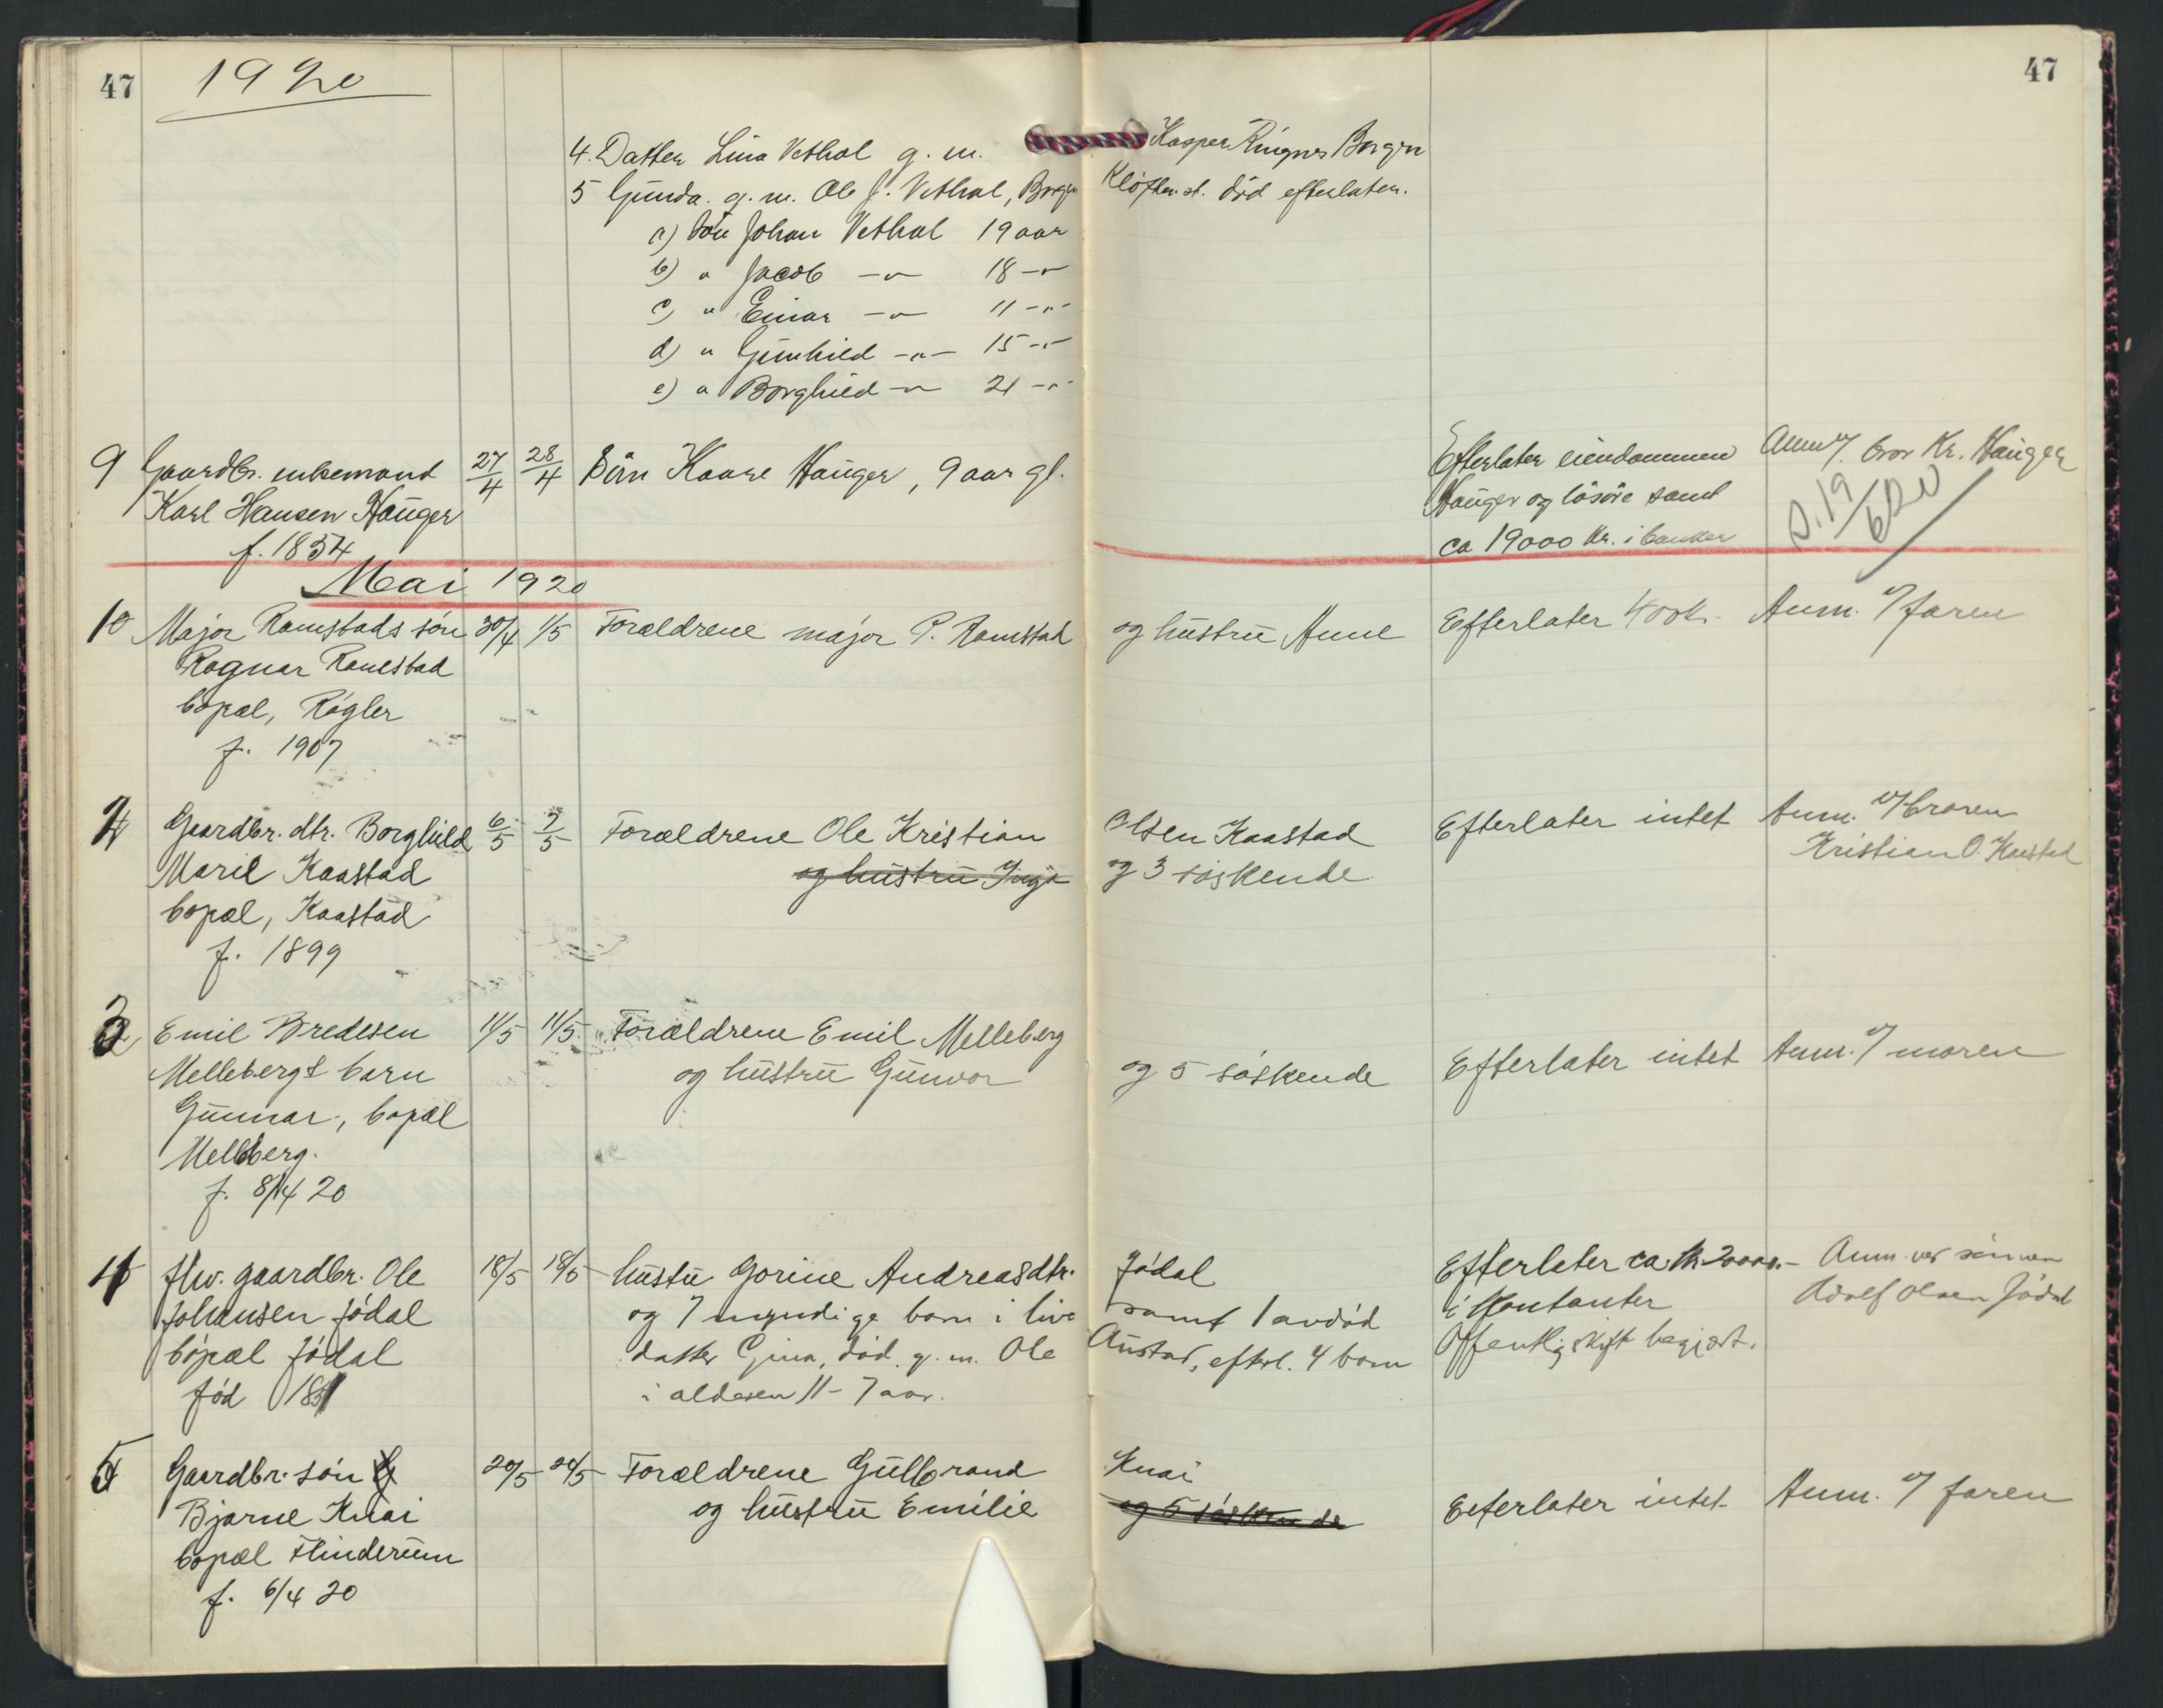 47 1920 47
4. Datter Lina Vethal g. m. Kasper Ringnes Borgen
5 Gunda. g. m. Ole J. Vethal, Borgen Kløften st. död efterlater.
a) Sön Johan Vethal 19 aar
b) " Jacob -"- 18 -"-
c) " Einar -"- 11 -"-
d) " Gunhild -"- 15 -"-
e) " Borghild -"- 21 -"-
9 Gaardbr. enkemand 27/4 28/4 Sön Kaare Hauger, 9 aar gl. Efterlater eiendommen Anm v/ bror Kr. Hauger
Karl Hansen Hauger Hauger og lösöre samt S. 19/6 20
f. 1854 ca 19000 Kr. i banken
Mai 1920
10 Major Ramstads sön 30/4 1/5 Forældrene major P. Ramstad og hustru Anne Efterlater 400 kr. Anm. v/ faren
Ragnar Ramstad
bopæl, Rögler
f. 1907
2 Gaardbr. dtr. Borghild 6/5 7/5 Forældrene Ole Kristian Olsen Kaastad Efterlater intet Anm. v/ broren
Marie Kaastad og hustru Inga og 3 söskende Kristian O. Kaastad
bopæl, Kaastad
f. 1899
3 Emil Bredesen 11/5 11/5 Forældrene Emil Melleberg
Mellebergs barn og hustru Gunvor og 5 söskende Efterlater intet Anm. v/ moren
Gunnar, bopæl
Melleberg.
f. 8/4 20
4 fhv. gaardbr. Ole 18/5 18/5 hustru Gorine Andreasdtr. Jödal Efterlater ca. kr 20000.- Anm. ved sönnen
Johansen Jödal og 7 myndige barn i live samt 1 avdöd i kontanter Adolf Olsen Jödal
bopæl Jödal datter Gina, död g. m. Ole Austad, efterl. 4 barn Offentlig skift begjært.
född 1831 i alderen 11 - 7 aar.
5 Gaardbr. sön G 20/5 20/5 Forældrene Gulbrand Knai
Bjarne Knai og hustru Emilie og 5 söskende Efterlater intet Anm. v/ faren
bopæl Flinderum
f. 6/4 20